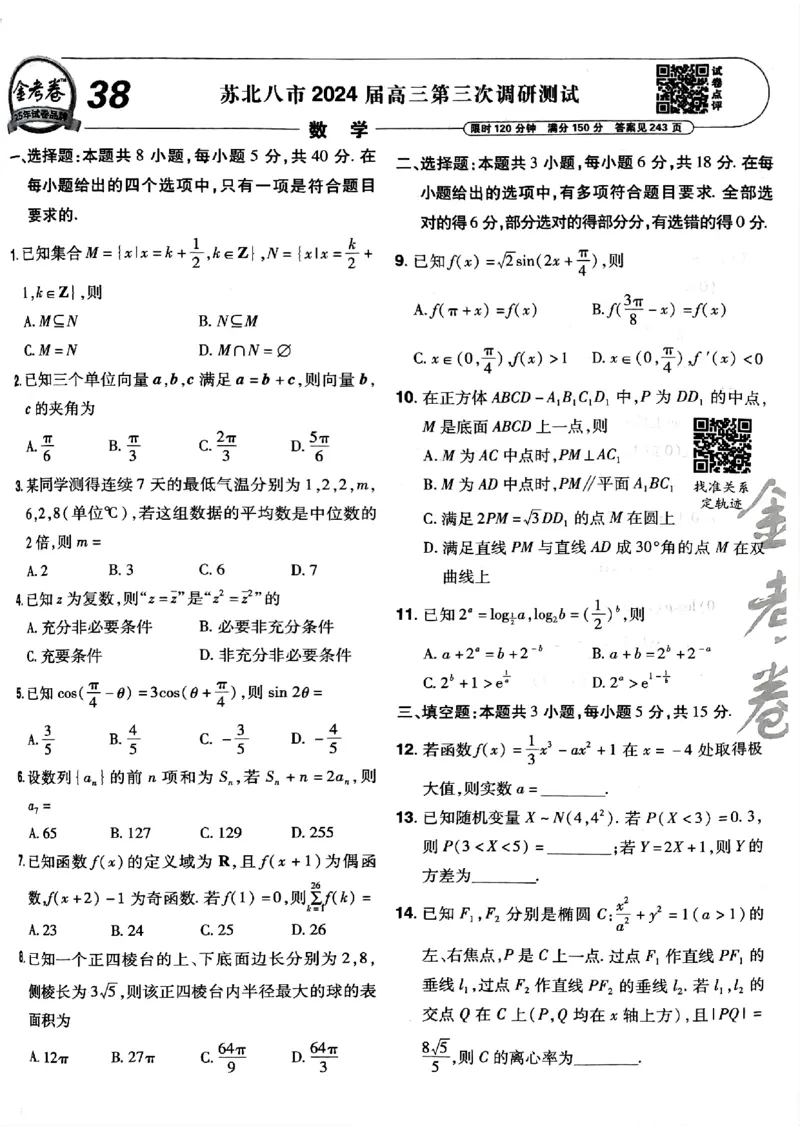 金考卷
25年试卷品牌
38
苏北八市2024届高三第三次调研测试
试卷点评
数 学
限时120分钟 满分150分 答案见243页
一、选择题:本题共8小题,每小题5分,共40分.在
每小题给出的四个选项中,只有一项是符合题目
要求的.
1.已知集合M={x|x=k+1/2,k∈Z},N={x|x=k/2+
1,k∈Z},则
A.M⊆N B.N⊆M
C.M=N D.M∩N=∅
2.已知三个单位向量a,b,c满足a=b+c,则向量b,
c的夹角为
A.π/6 B.π/3 C.2π/3 D.5π/6
3.某同学测得连续7天的最低气温分别为1,2,2,m,
6,2,8(单位℃),若这组数据的平均数是中位数的
2倍,则m=
A.2 B.3 C.6 D.7
4.已知z为复数,则“z=z̄”是“z²=z̄²”的
A.充分非必要条件 B.必要非充分条件
C.充要条件 D.非充分非必要条件
5.已知cos(π/4-θ)=3cos(θ+π/4),则sin 2θ=
A.3/5 B.4/5 C.-3/5 D.-4/5
6.设数列{aₙ}的前n项和为Sₙ,若Sₙ+n=2aₙ,则
a₇=
A.65 B.127 C.129 D.255
7.已知函数f(x)的定义域为R,且f(x+1)为偶函
数,f(x+2)-1为奇函数.若f(1)=0,则∑(k=1→26)f(k)=
A.23 B.24 C.25 D.26
8.已知一个正四棱台的上、下底面边长分别为2,8,
侧棱长为3√5,则该正四棱台内半径最大的球的表
面积为
A.12π B.27π C.64π/9 D.64π/3
二、选择题:本题共3小题,每小题6分,共18分.在每
小题给出的选项中,有多项符合题目要求.全部选
对的得6分,部分选对的得部分分,有选错的得0分.
9.已知f(x)=√2sin(2x+π/4),则
A.f(π+x)=f(x) B.f(3π/8-x)=f(x)
C.x∈(0,π/4),f(x)>1 D.x∈(0,π/4),f′(x)<0
10.在正方体ABCD-A₁B₁C₁D₁中,P为DD₁的中点,
M是底面ABCD上一点,则
A.M为AC中点时,PM⊥AC₁
B.M为AD中点时,PM∥平面A₁BC₁
找准关系
定轨迹
C.满足2PM=√5DD₁的点M在圆上
D.满足直线PM与直线AD成30°角的点M在双
曲线上
金考卷
11.已知2ᵃ=log_(1/2)a,log₂b=(1/2)ᵇ,则
A.a+2ᵃ=b+2⁻ᵇ B.a+b=2ᵇ+2⁻ᵃ
C.2ᵇ+1>e^(1/a) D.2ᵃ>e^(1-1/b)
三、填空题:本题共3小题,每小题5分,共15分.
12.若函数f(x)=1/3x³-ax²+1在x=-4处取得极
大值,则实数a=______.
13.已知随机变量X~N(4,4²).若P(X<3)=0.3,
则P(3<X<5)=______;若Y=2X+1,则Y的
方差为______.
14.已知F₁,F₂分别是椭圆C:x²/a²+y²=1(a>1)的
左、右焦点,P是C上一点.过点F₁作直线PF₁的
垂线l₁,过点F₂作直线PF₂的垂线l₂.若l₁,l₂的
交点Q在C上(P,Q均在x轴上方),且|PQ|=
8√5/5,则C的离心率为______.